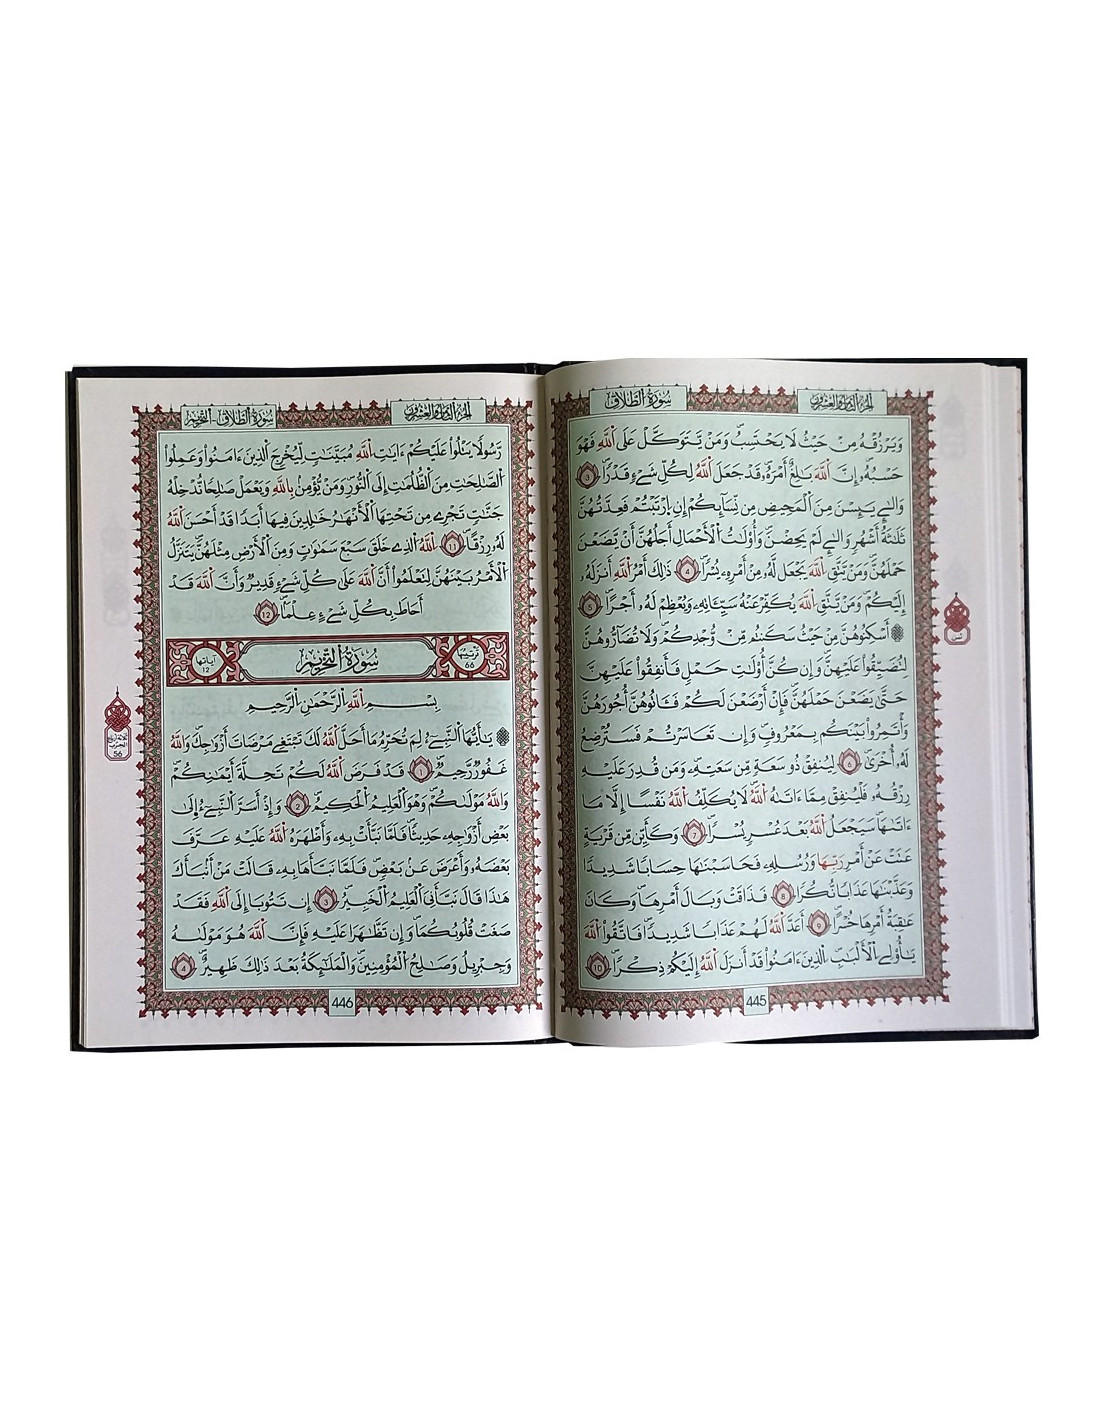 سُورَةُ الطَّلَاقِ
الجزء الثامن والعشرون
وَيَرْزُقْهُ مِنْ حَيْثُ لَا يَحْتَسِبُ وَمَنْ يَّتَوَكَّلْ عَلَى اَللَّهِ فَهُوَ
حَسْبُهُ إِنَّ اَللَّهَ بَٰلِغٌ أَمْرَهُ قَدْ جَعَلَ اَللَّهُ لِكُلِّ شَےْءٍ قَدْراً 3
وَالٰٓے يَئِسْنَ مِنَ اَلْمَحِيضِ مِن نِّسَآئِكُمْ إِنِ اِرْتَبْتُمْ فَعِدَّتُهُنَّ
ثَلَٰثَةُ أَشْهُرٍ وَالٰٓے لَمْ يَحِضْنَ وَأُوْلَٰتُ اُلْأَحْمَالِ أَجَلُهُنَّ أَنْ يَّضَعْنَ
حَمْلَهُنَّ وَمَنْ يَّتَّقِ اِللَّهَ يَجْعَل لَّهُ مِنْ أَمْرِهِ يُسْراً 4 ذَٰلِكَ أَمْرُ اُللَّهِ أَنزَلَهُ
إِلَيْكُمْ وَمَنْ يَّتَّقِ اِللَّهَ يُكَفِّرْ عَنْهُ سَيِّـَٔاتِهِ وَيُعْظِمْ لَهُ أَجْراً 5
أَسْكِنُوهُنَّ مِنْ حَيْثُ سَكَنتُم مِّنْ وُّجْدِكُمْ وَلَا تُضَآرُّوهُنَّ
لِتُضَيِّقُواْ عَلَيْهِنَّ وَإِن كُنَّ أُوْلَٰتِ حَمْلٍ فَأَنفِقُواْ عَلَيْهِنَّ
حَتَّىٰ يَضَعْنَ حَمْلَهُنَّ فَإِنْ أَرْضَعْنَ لَكُمْ فَـَٔاتُوهُنَّ أُجُورَهُنَّ
وَأْتَمِرُواْ بَيْنَكُم بِمَعْرُوفٍ وَإِن تَعَاسَرْتُمْ فَسَتُرْضِعُ
لَهُ أُخْرَىٰ 6 لِيُنفِقْ ذُو سَعَةٍ مِّن سَعَتِهِ وَمَن قُدِرَ عَلَيْهِ
رِزْقُهُ فَلْيُنفِقْ مِمَّا ءَاتَىٰهُ اُللَّهُ لَا يُكَلِّفُ اُللَّهُ نَفْساً إِلَّا مَا
ءَاتَىٰهَا سَيَجْعَلُ اُللَّهُ بَعْدَ عُسْرٍ يُسْراً 7 وَكَأَيِّن مِّن قَرْيَةٍ
عَتَتْ عَنْ أَمْرِ رَبِّهَا وَرُسُلِهِ فَحَاسَبْنَٰهَا حِسَاباً شَدِيداً
وَعَذَّبْنَٰهَا عَذَاباً نُّكُراً 8 فَذَاقَتْ وَبَالَ أَمْرِهَا وَكَانَ
عَٰقِبَةُ أَمْرِهَا خُسْراً 9 أَعَدَّ اَللَّهُ لَهُمْ عَذَاباً شَدِيداً فَاتَّقُواْ اُللَّهَ
يَٰٓأُوْلِے اِلْأَلْبَٰبِ اِلذِينَ ءَامَنُواْ قَدْ أَنزَلَ اَللَّهُ إِلَيْكُمْ ذِكْراً 10
445
ثمن
سُورَةُ الطَّلَاقِ - التَّحْرِيمِ
الجزء الثامن والعشرون
رَّسُولاً يَتْلُواْ عَلَيْكُمْ ءَايَٰتِ اِللَّهِ مُبَيَّنَٰتٍ لِّيُخْرِجَ اَلذِينَ ءَامَنُواْ وَعَمِلُواْ
اُلصَّٰلِحَٰتِ مِنَ اَلظُّلُمَٰتِ إِلَى اَلنُّورِ وَمَنْ يُّؤْمِنْ بِاللَّهِ وَيَعْمَلْ صَٰلِحاً نُّدْخِلْهُ
جَنَّٰتٍ تَجْرِے مِن تَحْتِهَا اَلْأَنْهَٰرُ خَٰلِدِينَ فِيهَا أَبَداً قَدْ أَحْسَنَ اَللَّهُ
لَهُ رِزْقاً 11 اَللَّهُ اُلذِے خَلَقَ سَبْعَ سَمَٰوَٰتٍ وَمِنَ اَلْأَرْضِ مِثْلَهُنَّ يَتَنَزَّلُ
اُلْأَمْرُ بَيْنَهُنَّ لِتَعْلَمُواْ أَنَّ اَللَّهَ عَلَىٰ كُلِّ شَےْءٍ قَدِيرٌ وَأَنَّ اَللَّهَ قَدْ
أَحَاطَ بِكُلِّ شَےْءٍ عِلْماً 12
ترتيبها 66
سُورَةُ التَّحْرِيمِ
آياتها 12
بِسْمِ اِللَّهِ اِلرَّحْمَٰنِ اِلرَّحِيمِ
يَٰٓأَيُّهَا اَلنَّبِےٓءُ لِمَ تُحَرِّمُ مَا أَحَلَّ اَللَّهُ لَكَ تَبْتَغِے مَرْضَاتَ أَزْوَٰجِكَ وَاللَّهُ
غَفُورٌ رَّحِيمٌ 1 قَدْ فَرَضَ اَللَّهُ لَكُمْ تَحِلَّةَ أَيْمَٰنِكُمْ
وَاللَّهُ مَوْلَىٰكُمْ وَهُوَ اَلْعَلِيمُ اُلْحَكِيمُ 2 وَإِذْ أَسَرَّ اَلنَّبِےٓءُ إِلَىٰ
بَعْضِ أَزْوَٰجِهِ حَدِيثاً فَلَمَّا نَبَّأَتْ بِهِ وَأَظْهَرَهُ اُللَّهُ عَلَيْهِ عَرَّفَ
بَعْضَهُ وَأَعْرَضَ عَنْ بَعْضٍ فَلَمَّا نَبَّأَهَا بِهِ قَالَتْ مَنْ أَنْبَأَكَ
هَٰذَا قَالَ نَبَّأَنِيَ اَلْعَلِيمُ اُلْخَبِيرُ 3 إِن تَتُوبَا إِلَى اَللَّهِ فَقَدْ
صَغَتْ قُلُوبُكُمَا وَإِن تَظَّٰهَرَا عَلَيْهِ فَإِنَّ اَللَّهَ هُوَ مَوْلَىٰهُ
وَجِبْرِيلُ وَصَٰلِحُ اُلْمُؤْمِنِينَ وَالْمَلَٰٓئِكَةُ بَعْدَ ذَٰلِكَ ظَهِيرٌ 4
446
ثلاثة أرباع
الحزب
56